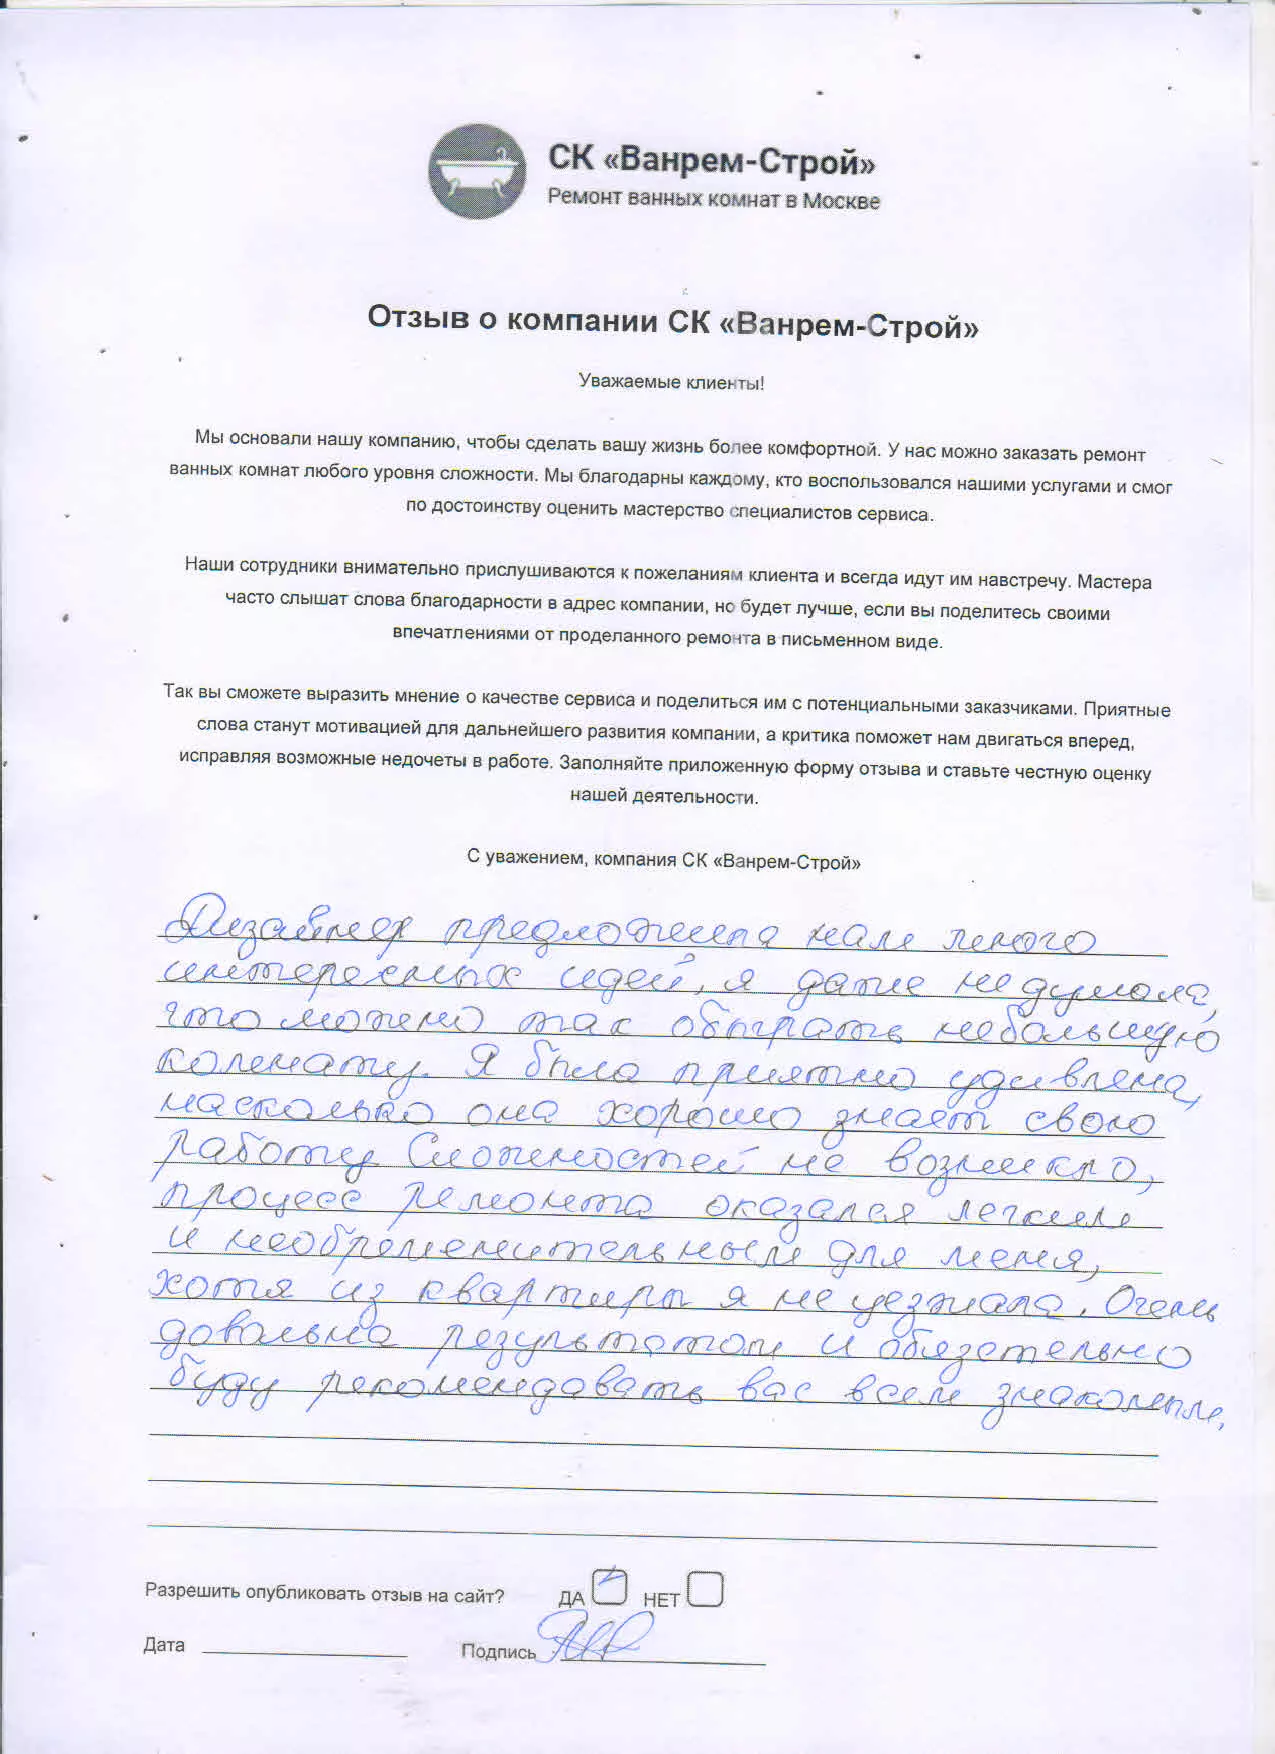 СК «Ванрем-Строй»
Ремонт ванных комнат в Москве
Отзыв о компании СК «Ванрем-Строй»
Уважаемые клиенты!
Мы основали нашу компанию, чтобы сделать вашу жизнь более комфортной. У нас можно заказать ремонт
ванных комнат любого уровня сложности. Мы благодарны каждому, кто воспользовался нашими услугами и смог
по достоинству оценить мастерство специалистов сервиса.
Наши сотрудники внимательно прислушиваются к пожеланиям клиента и всегда идут им навстречу. Мастера
часто слышат слова благодарности в адрес компании, но будет лучше, если вы поделитесь своими
впечатлениями от проделанного ремонта в письменном виде.
Так вы сможете выразить мнение о качестве сервиса и поделиться им с потенциальными заказчиками. Приятные
слова станут мотивацией для дальнейшего развития компании, а критика поможет нам двигаться вперед,
исправляя возможные недочеты в работе. Заполняйте приложенную форму отзыва и ставьте честную оценку
нашей деятельности.
С уважением, компания СК «Ванрем-Строй»
Дизайнер предложила нам много
интересных идей, я даже не думала,
что можно так обыграть небольшую
комнату. Я была приятно удивлена,
насколько она хорошо знает свою
работу. Сложностей не возникло,
процесс ремонта оказался легким
и необременительным для меня,
хотя из квартиры я не уезжала. Очень
довольна результатом и обязательно
буду рекомендовать вас всем знакомым.
Разрешить опубликовать отзыв на сайт? ДА НЕТ
Дата Подпись